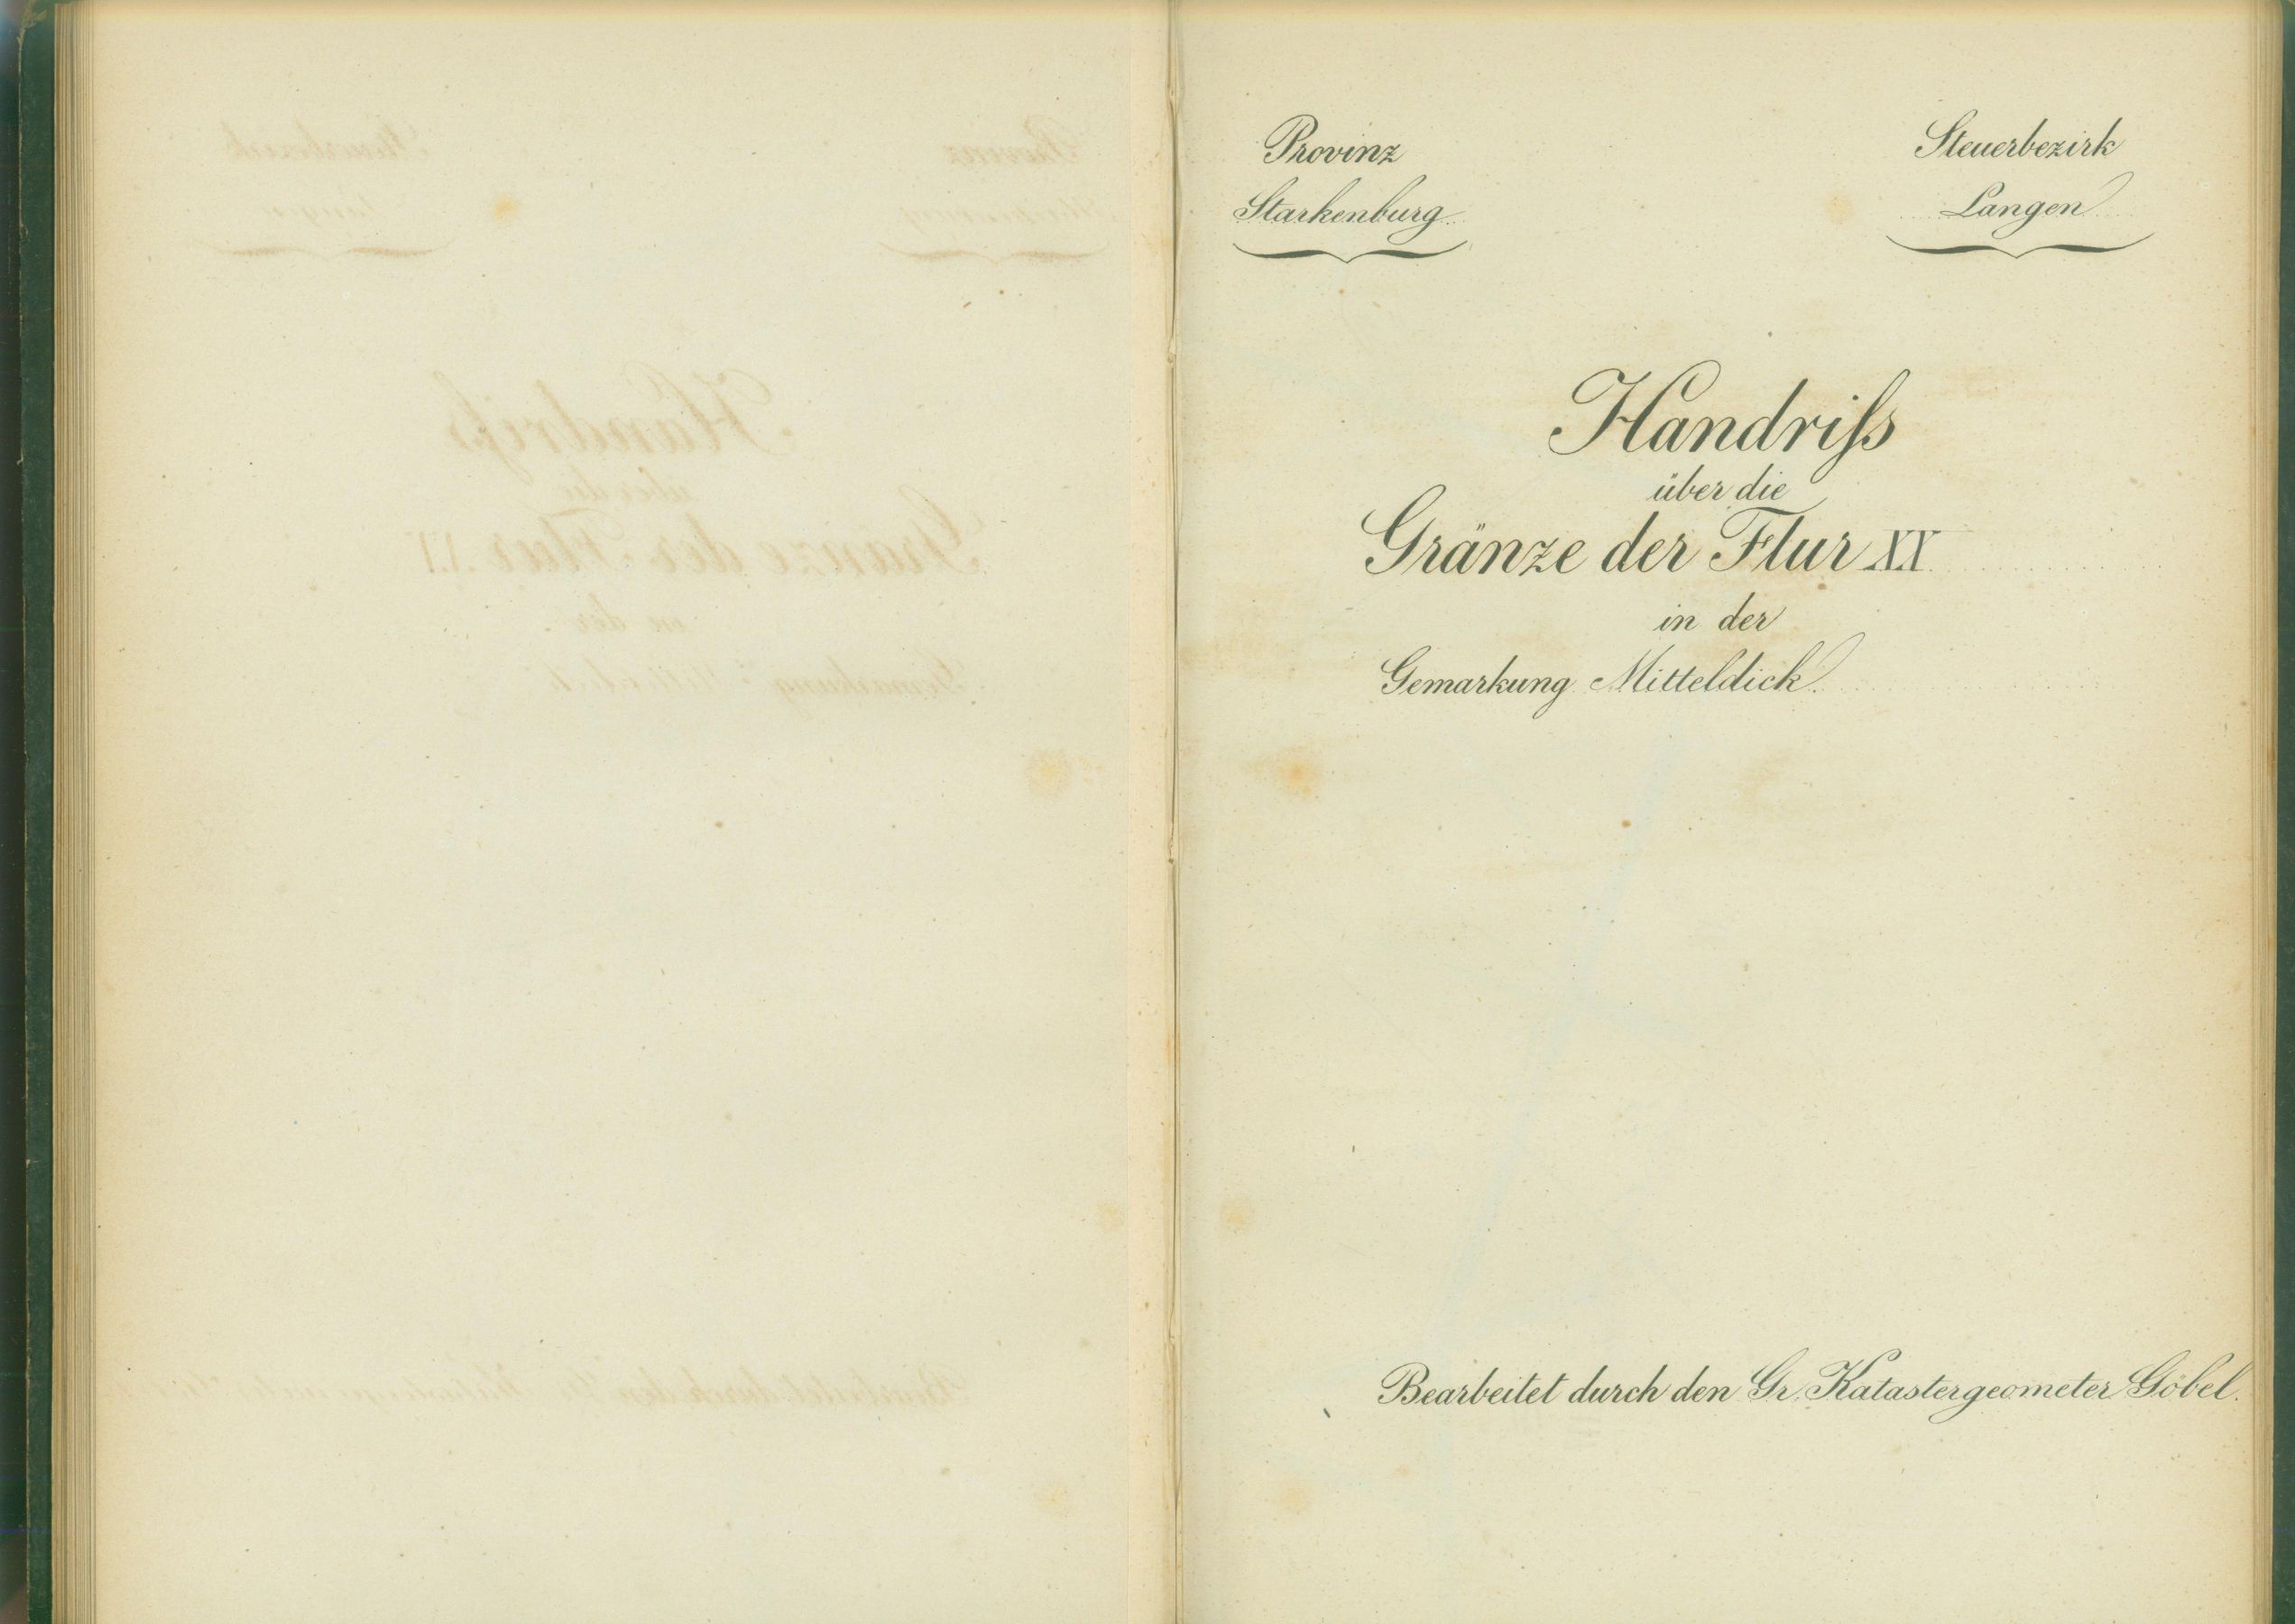 Provinz
Starkenburg
Steuerbezirk
Langen
Handriſs
über die
Gränze der Flur XX
in der
Gemarkung Mitteldick.
Bearbeitet durch den Gr. Katastergeometer Göbel.